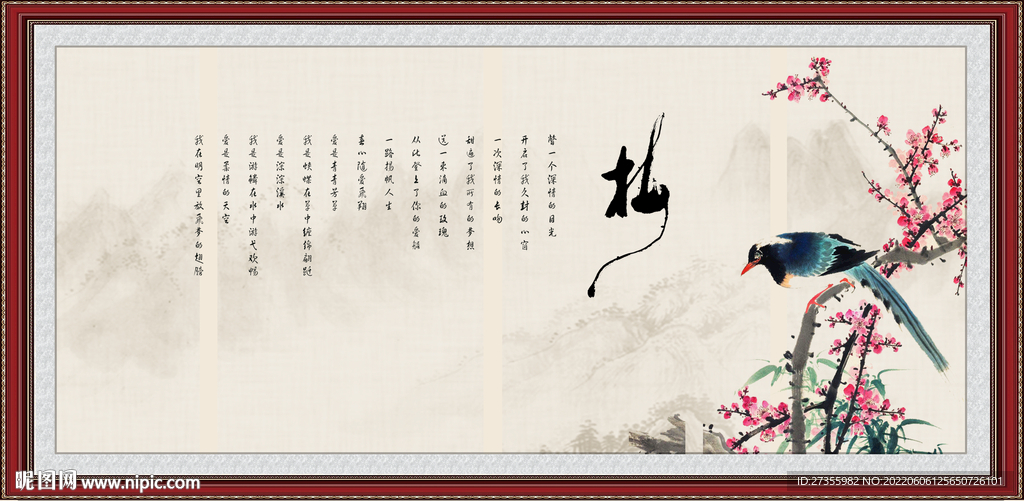 梅
瞥一个深情的目光
开启了我久封的心窗
一次深情的长吻
甜遍了我所有的梦想
送一束滴血的玫瑰
从此登上了你的爱船
一路扬帆人生
真心随爱飞翔
爱是青青芳草
我是蝶在草中缠绵翩跹
爱是深深溪水
我是游鳞在水中游弋欢畅
爱是柔情的天空
我在明空里放飞梦的翅膀
昵图网 www.nipic.com
ID:27355982 NO.20220606125650726101